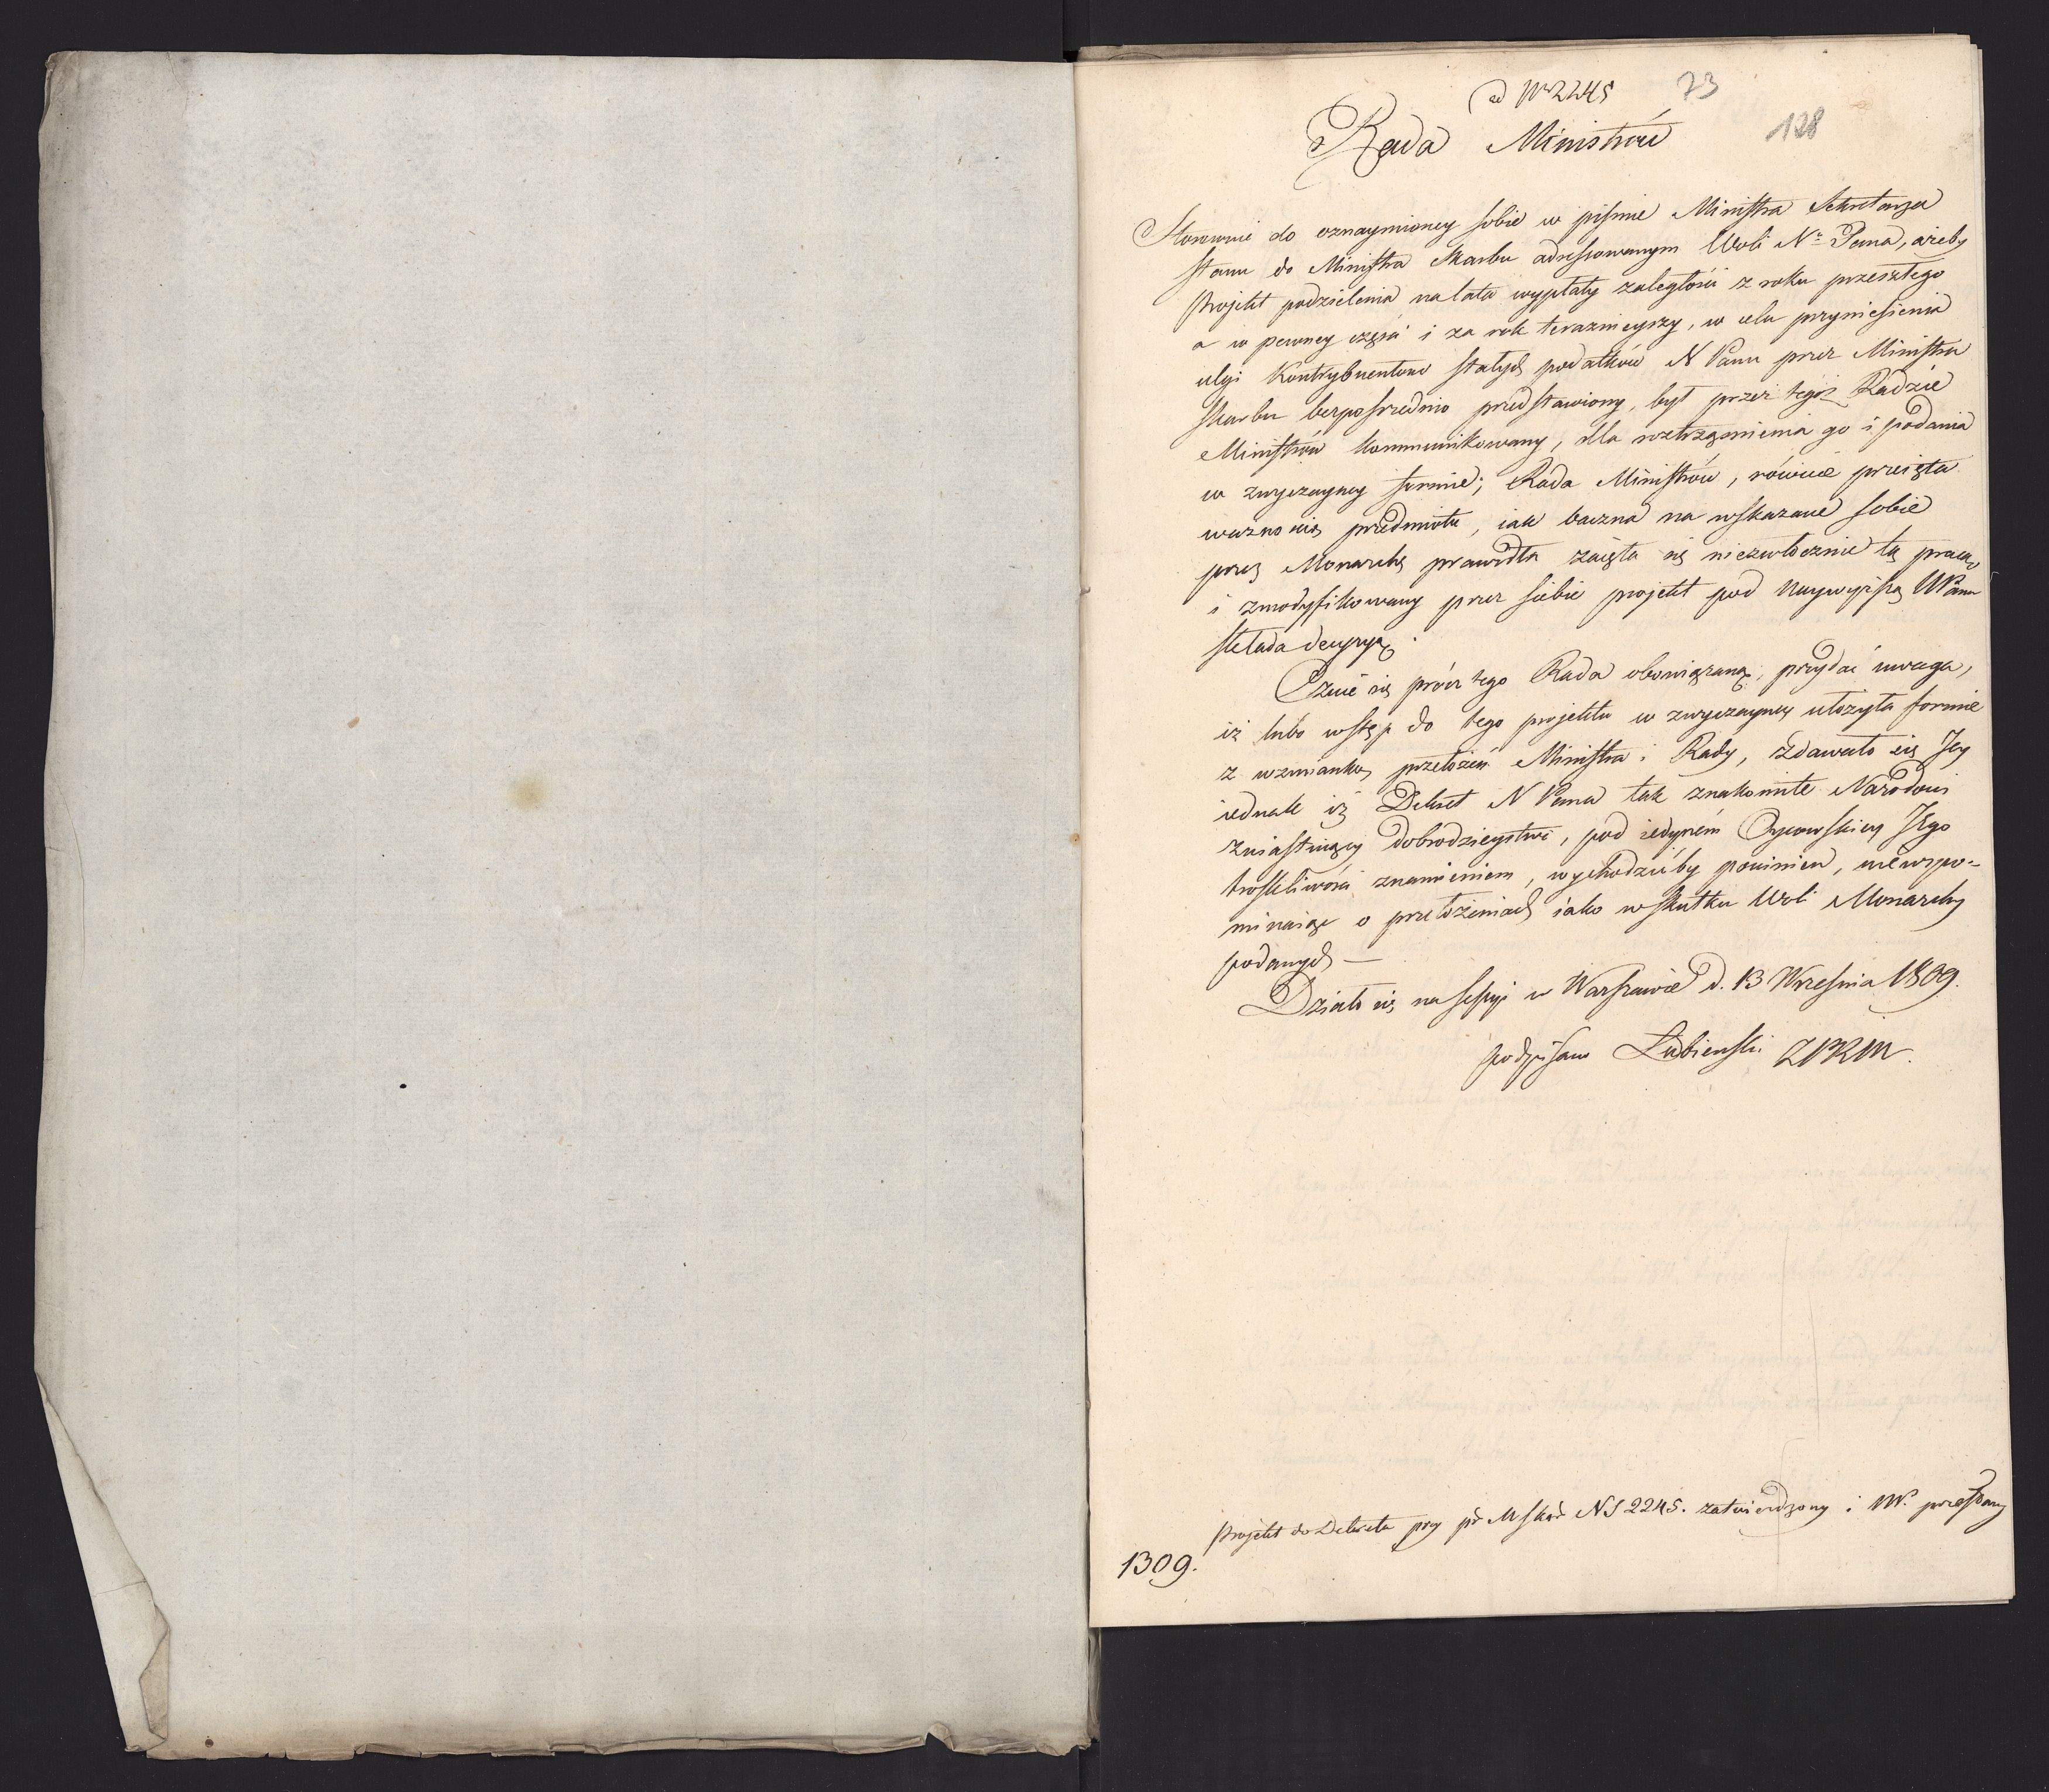 ad Nr 2245
73
128
Rada Ministrów
Stosownie do oznaymioney sobie w piśmie Ministra Sekretarza
Stanu do Ministra Skarbu adressowanym Woli Nº Pana, ażeby
projekt podzielenia na lata wypłaty zaległości z roku przeszłego
a w pewney części i za rok teraznieyszy, w celu przyniesienia
ulgi Kontrybuentom stałych podatków N Panu przez Ministra
Skarbu bezpośrednio przedstawiony, był przez tegoż Radzie
Ministrów kommunikowany, dla roztrząśnienia go i podania
w zwyczayney formie; Rada Ministrów, równie przeięta
ważnością przedmiotu, iak baczna na wskazane sobie
przez Monarchę prawidła zaięła się niezwłocznie tą pracą
i zmodyfikowany przez siebie projekt pod Naywyższą NPana
składa decyzyą.
Czuie się prócz tego Rada obowiązaną, przydać uwagę,
iż lubo wstęp do tego projektu w zwyczayney ułożyła formie
z wzmianką przełożeń Ministra i Rady, zdawało się Jey
iednak iż Dekret N Pana tak znakomite Narodowi
zwiastuiący dobrodzieystwo, pod iedyném Oycowskiey Jego
troskliwości znamieniem, wychodzićby powinien, niewspo-
minaiąc o przełożeniach iako w skutku Woli Monarchy
podanych —
Działo się na Sessyi w Warszawie d. 13 Września 1809.
podpisano Łubieński ZPRM.
Projekt do Dekretu przy M Skar NS 2245. zatwierdzony i przesłany
1309.